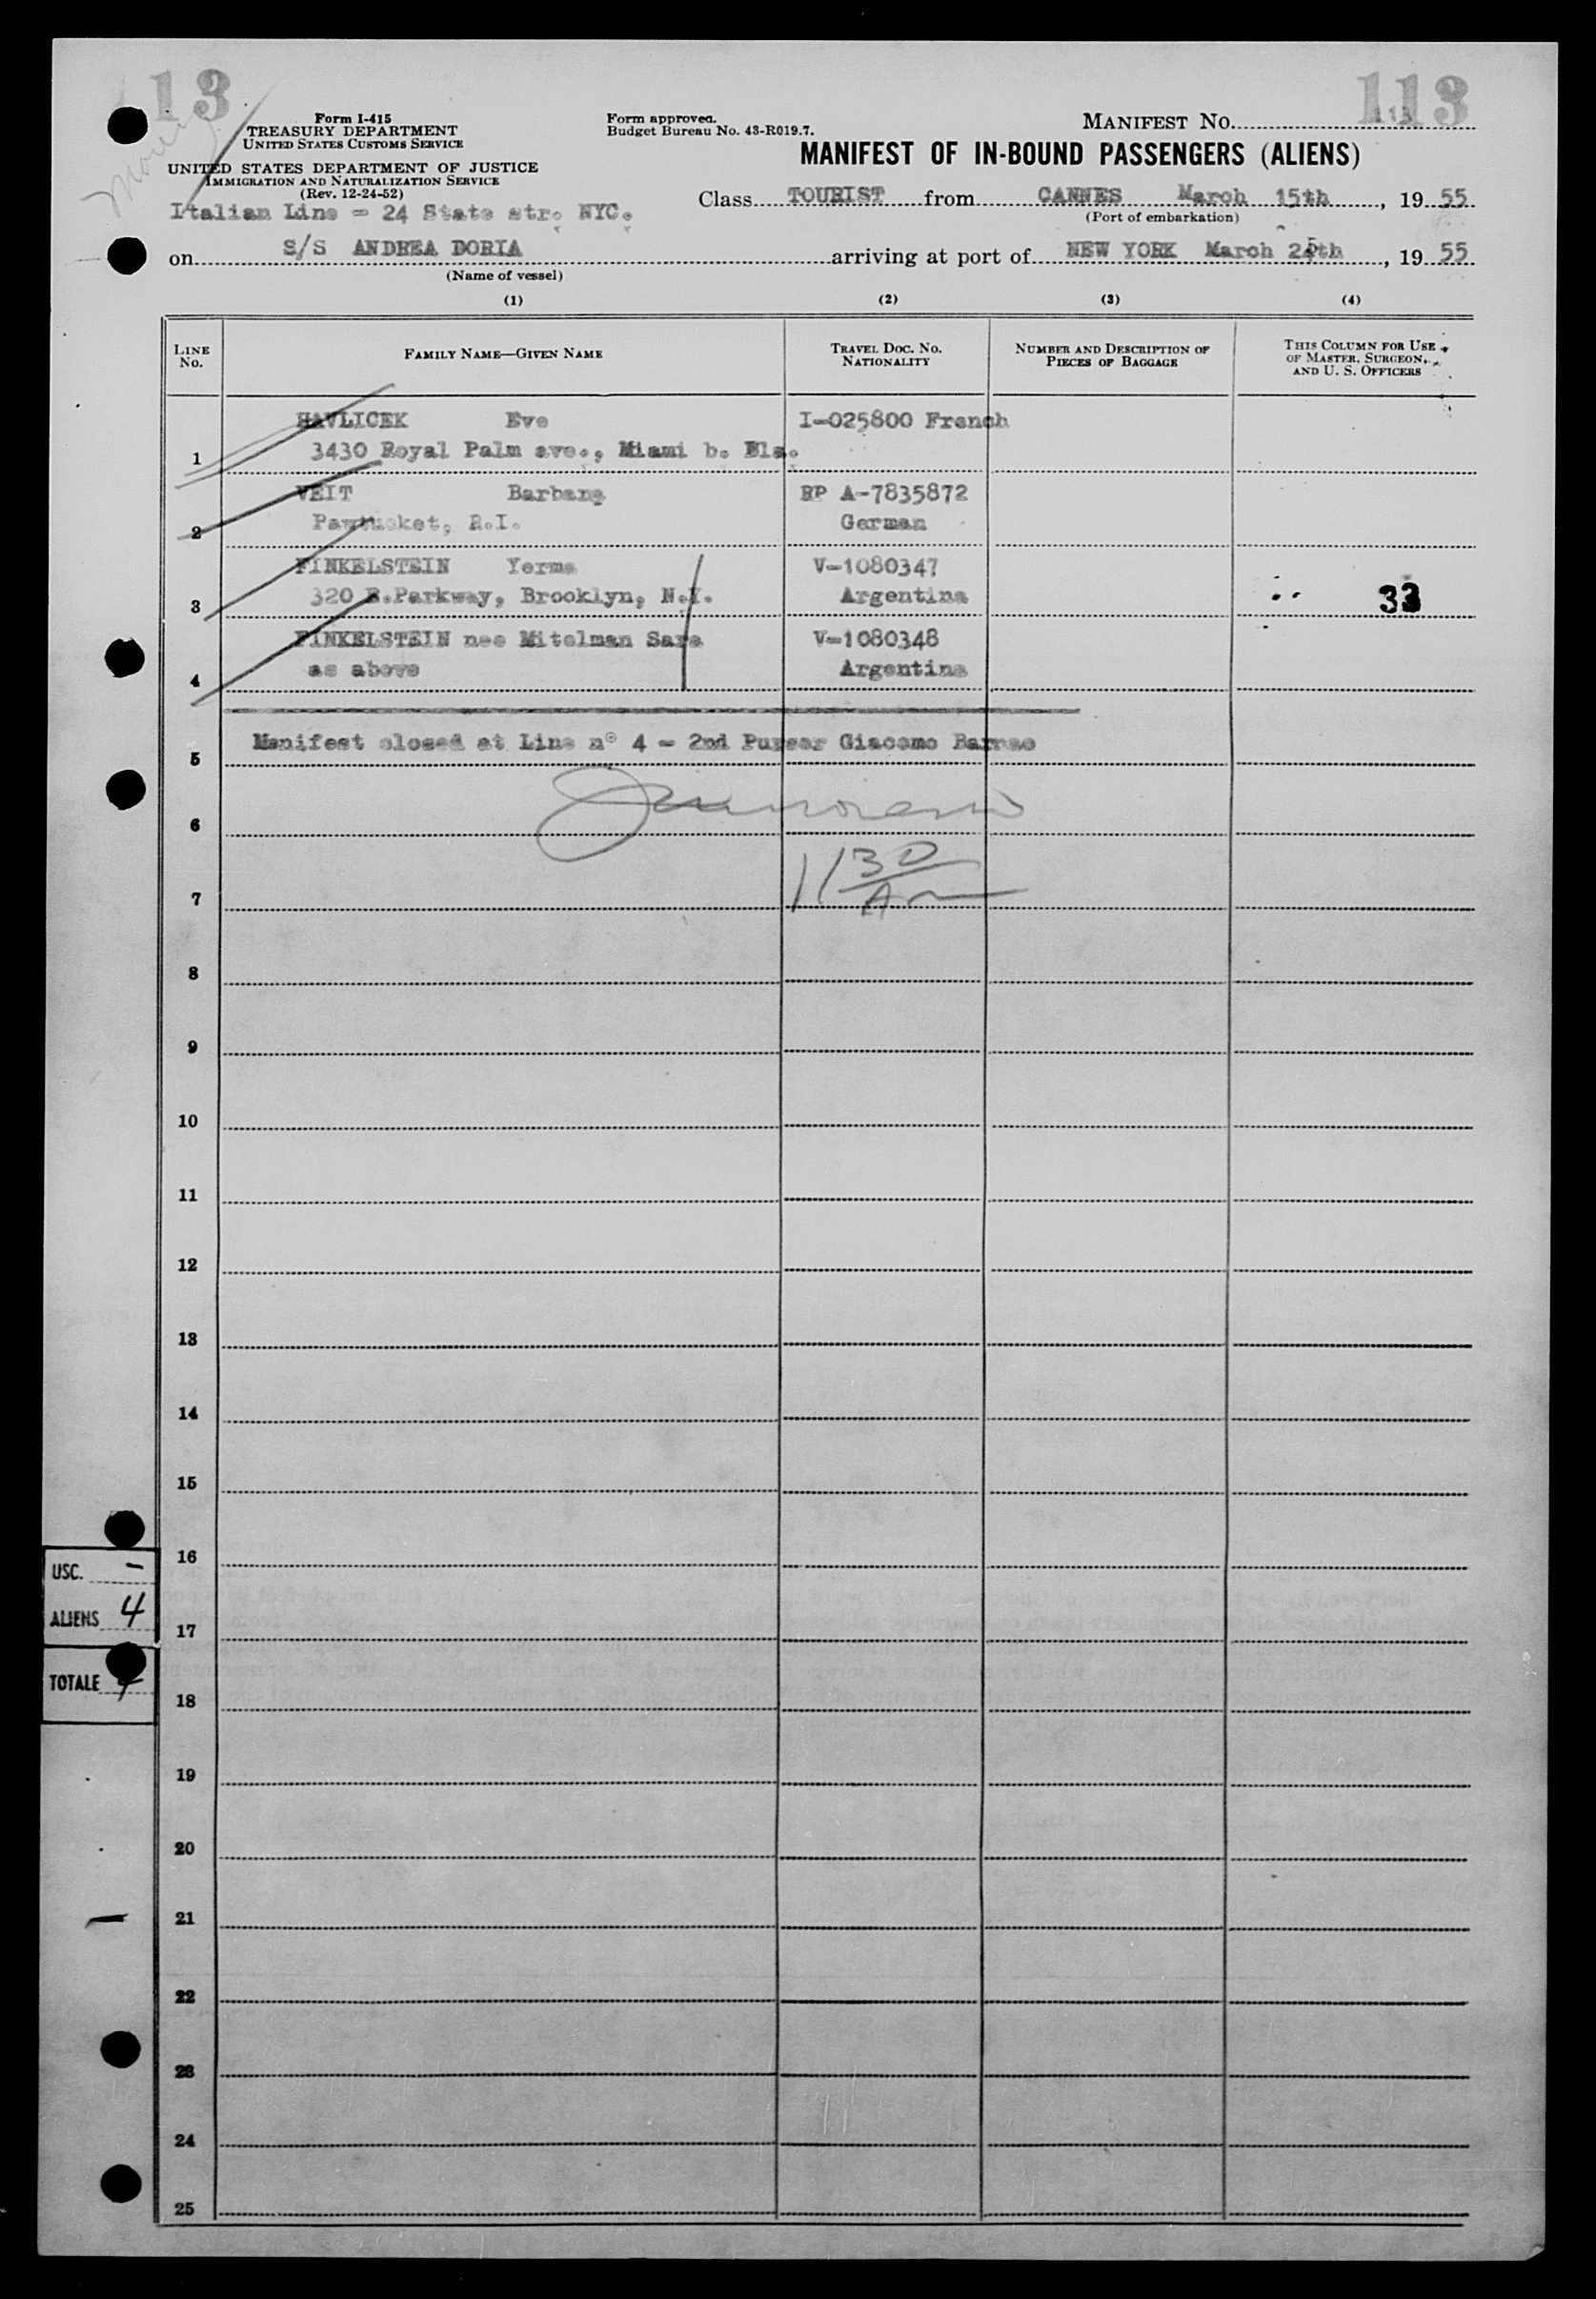 113
113
Form I-415
TREASURY DEPARTMENT
UNITED STATES CUSTOMS SERVICE
Form approved.
Budget Bureau No. 43-R019.7.
MANIFEST NO. 113
UNITED STATES DEPARTMENT OF JUSTICE
IMMIGRATION AND NATURALIZATION SERVICE
(Rev. 12-24-52)
MANIFEST OF IN-BOUND PASSENGERS (ALIENS)
Italian Line - 24 State str. NYC.
Class TOURIST from CANNES March 15th, 19 55
(Port of embarkation)
on S/S ANDREA DORIA arriving at port of NEW YORK March 25th, 19 55
(Name of vessel)
(1) (2) (3) (4)
LINE NO. FAMILY NAME—GIVEN NAME TRAVEL DOC. NO. NATIONALITY NUMBER AND DESCRIPTION OF PIECES OF BAGGAGE THIS COLUMN FOR USE OF MASTER, SURGEON, AND U. S. OFFICERS
HAVLICEK Eve I-025800 French
1 3430 Royal Palm ave., Miami b. Fla.
VEIT Barbara RP A-7835872
2 Pawtucket, R.I. German
FINKELSTEIN Yerma V-1080347
3 320 E.Parkway, Brooklyn, N.Y. Argentina 33
FINKELSTEIN nee Mitelman Sara V-1080348
4 as above Argentina
5 Manifest closed at Line n° 4 - 2nd Purser Giacomo
6
7 113 D
8
9
10
11
12
13
14
15
16
USC. -
ALIENS 4
17
TOTALE 4
18
19
20
21
22
23
24
25